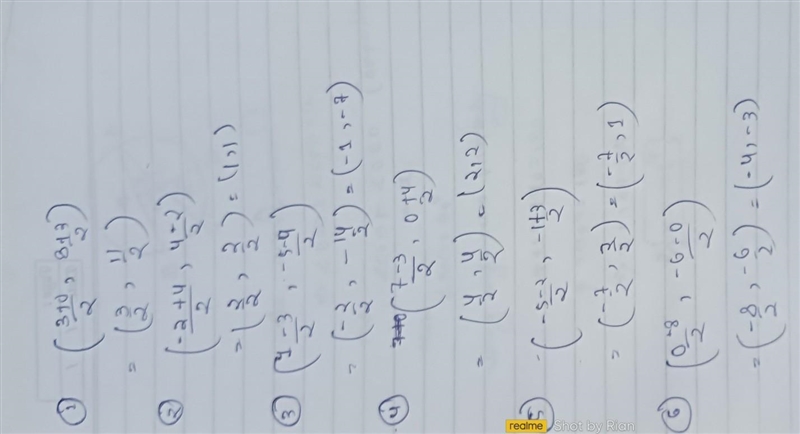 ① (3+0/2, 8+3/2)
= (3/2, 11/2)
② (-2+4/2, 4-2/2)
= (2/2, 2/2) = (1,1)
③ (4-3/2, -5-9/2)
= (-2/2, -14/2) = (-1, -7)
④ (7-3/2, 0+4/2)
= (4/2, 4/2) = (2,2)
⑤ (-5-2/2, -1+3/2)
= (-7/2, 2/2) = (-7/2, 1)
⑥ (0-8/2, -6-0/2)
= (-8/2, -6/2) = (-4,-3)
realme Shot by Rian